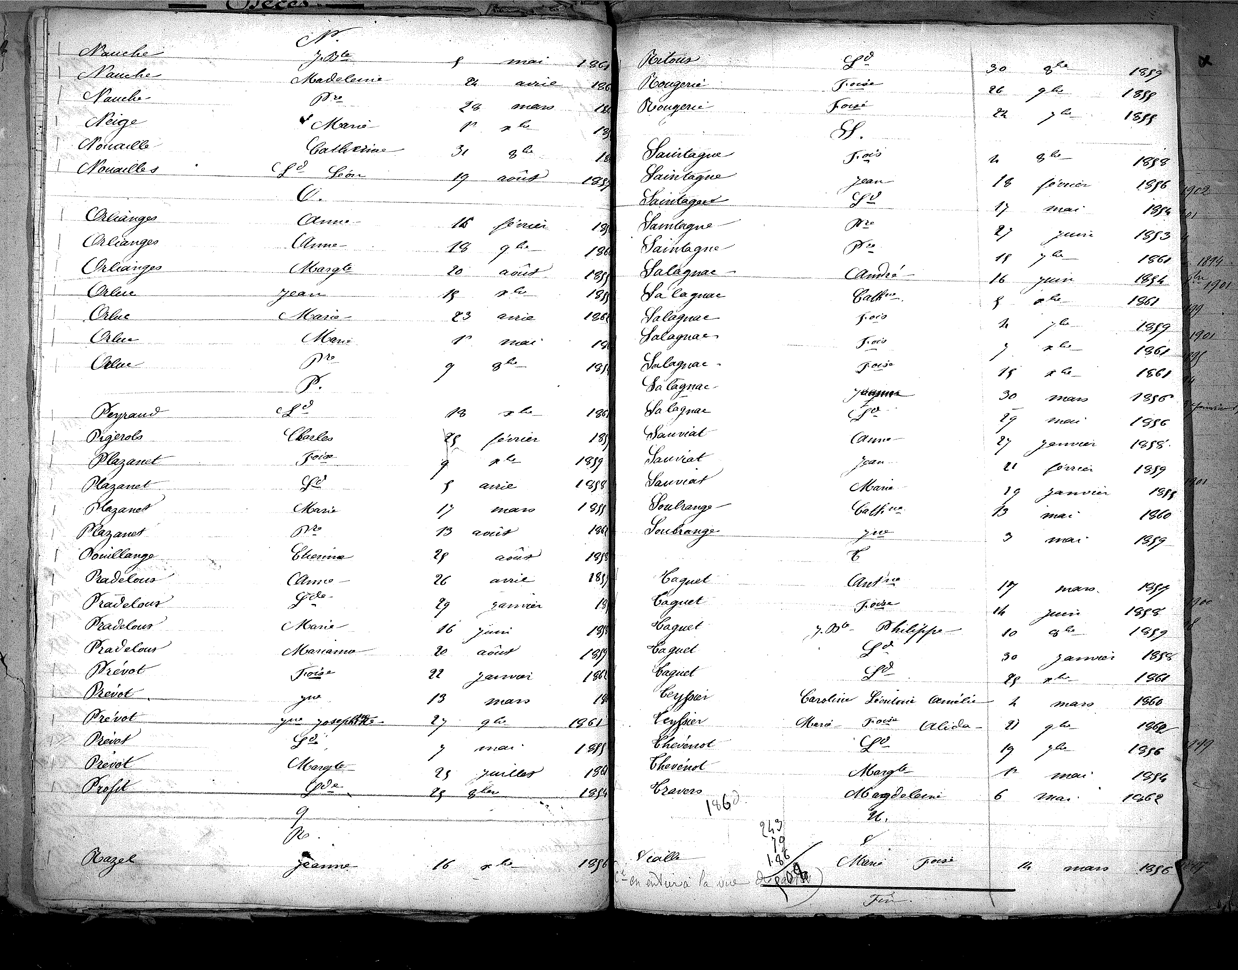 Décès
N.
Nauche J. Bte 5 mai 186
Nauche Madeleine 24 avril 186
Nauche Pre 28 mars 18
Neige Marie 1r xbre 18
Nouaille Catherine 31 8bre 18
Nouailles Ld Léon 19 août 185
O.
Orlianges Anne 16 février 18
Orlianges Anne 18 9bre 186
Orlianges Margte 20 août 185
Orluc Jean 15 xbre 185
Orluc Marie 23 avril 186
Orluc Marie 1r mai 18
Orluc Pre 9 8bre 185
P.
Peyraud Ld 13 xbre 186
Pigerols Charles 25 février 185
Plazanet Foise 9 xbre 1859
Plazanet Ld 5 avril 1858
Plazanet Marie 17 mars 1855
Plazanet Pre 13 août 186
Pouillange Etienne 25 août 1858
Pradeloux Anne 26 avril 185
Pradeloux Lde 29 janvier 18
Pradeloux Marie 16 juin 185
Pradeloux Marianne 20 août 1859
Prévot Foise 22 janvier 186
Prévot Jne 13 mars 18
Prévot Jne Josephte 27 9bre 1861
Prévot Ld 7 mai 1855
Prévot Margte 25 juillet 186
Profit Lde 25 8bre 1854
Q
R.
Razel Jeanne 16 xbre 1856
Ritoux Ld 30 8bre 1859
Rougerie Foise 26 9bre 1858
Rougerie Foise 22 7bre 1855
S.
Saintagne Fois 2 8bre 1858
Saintagne Jean 18 février 1856
Saintagne Ld 17 mai 1854
Saintagne Pre 27 juin 1853
Saintagne Pre 15 7bre 1861
Salagnac André 16 juin 1854
Salagnac Cathne 5 xbre 1861
Salagnac Fois 2 7bre 1859
Salagnac Fois 7 xbre 1861
Salagnac Foise 15 xbre 1861
Salagnac 30 mars 1856
Salagnac Ld 29 mai 1856
Sauviat Anne 27 janvier 1858
Sauviat Jean 21 février 1859
Sauviat Marie 19 janvier 1855
Soubrange Cathne 13 mai 1860
Soubrange Jne 3 mai 1859
T
Taguet Antne 17 mars 1857
Taguet Foise 14 juin 1858
Taguet J. Bte Philippe 10 8bre 1859
Taguet Ld 30 janvier 1858
Taguet Ld 25 xbre 1861
Teyssier Caroline Léontine Amélie 2 mars 1860
Teyssier Marie Foise Alida 21 9bre 1862
Thévenot Ld 19 7bre 1856
Thévenot Margte 1r mai 1854
Travers Magdeleine 6 mai 1862
U.
1860
243
79
186
V
Vialle Marie Foise 14 mars 1856
Fin.